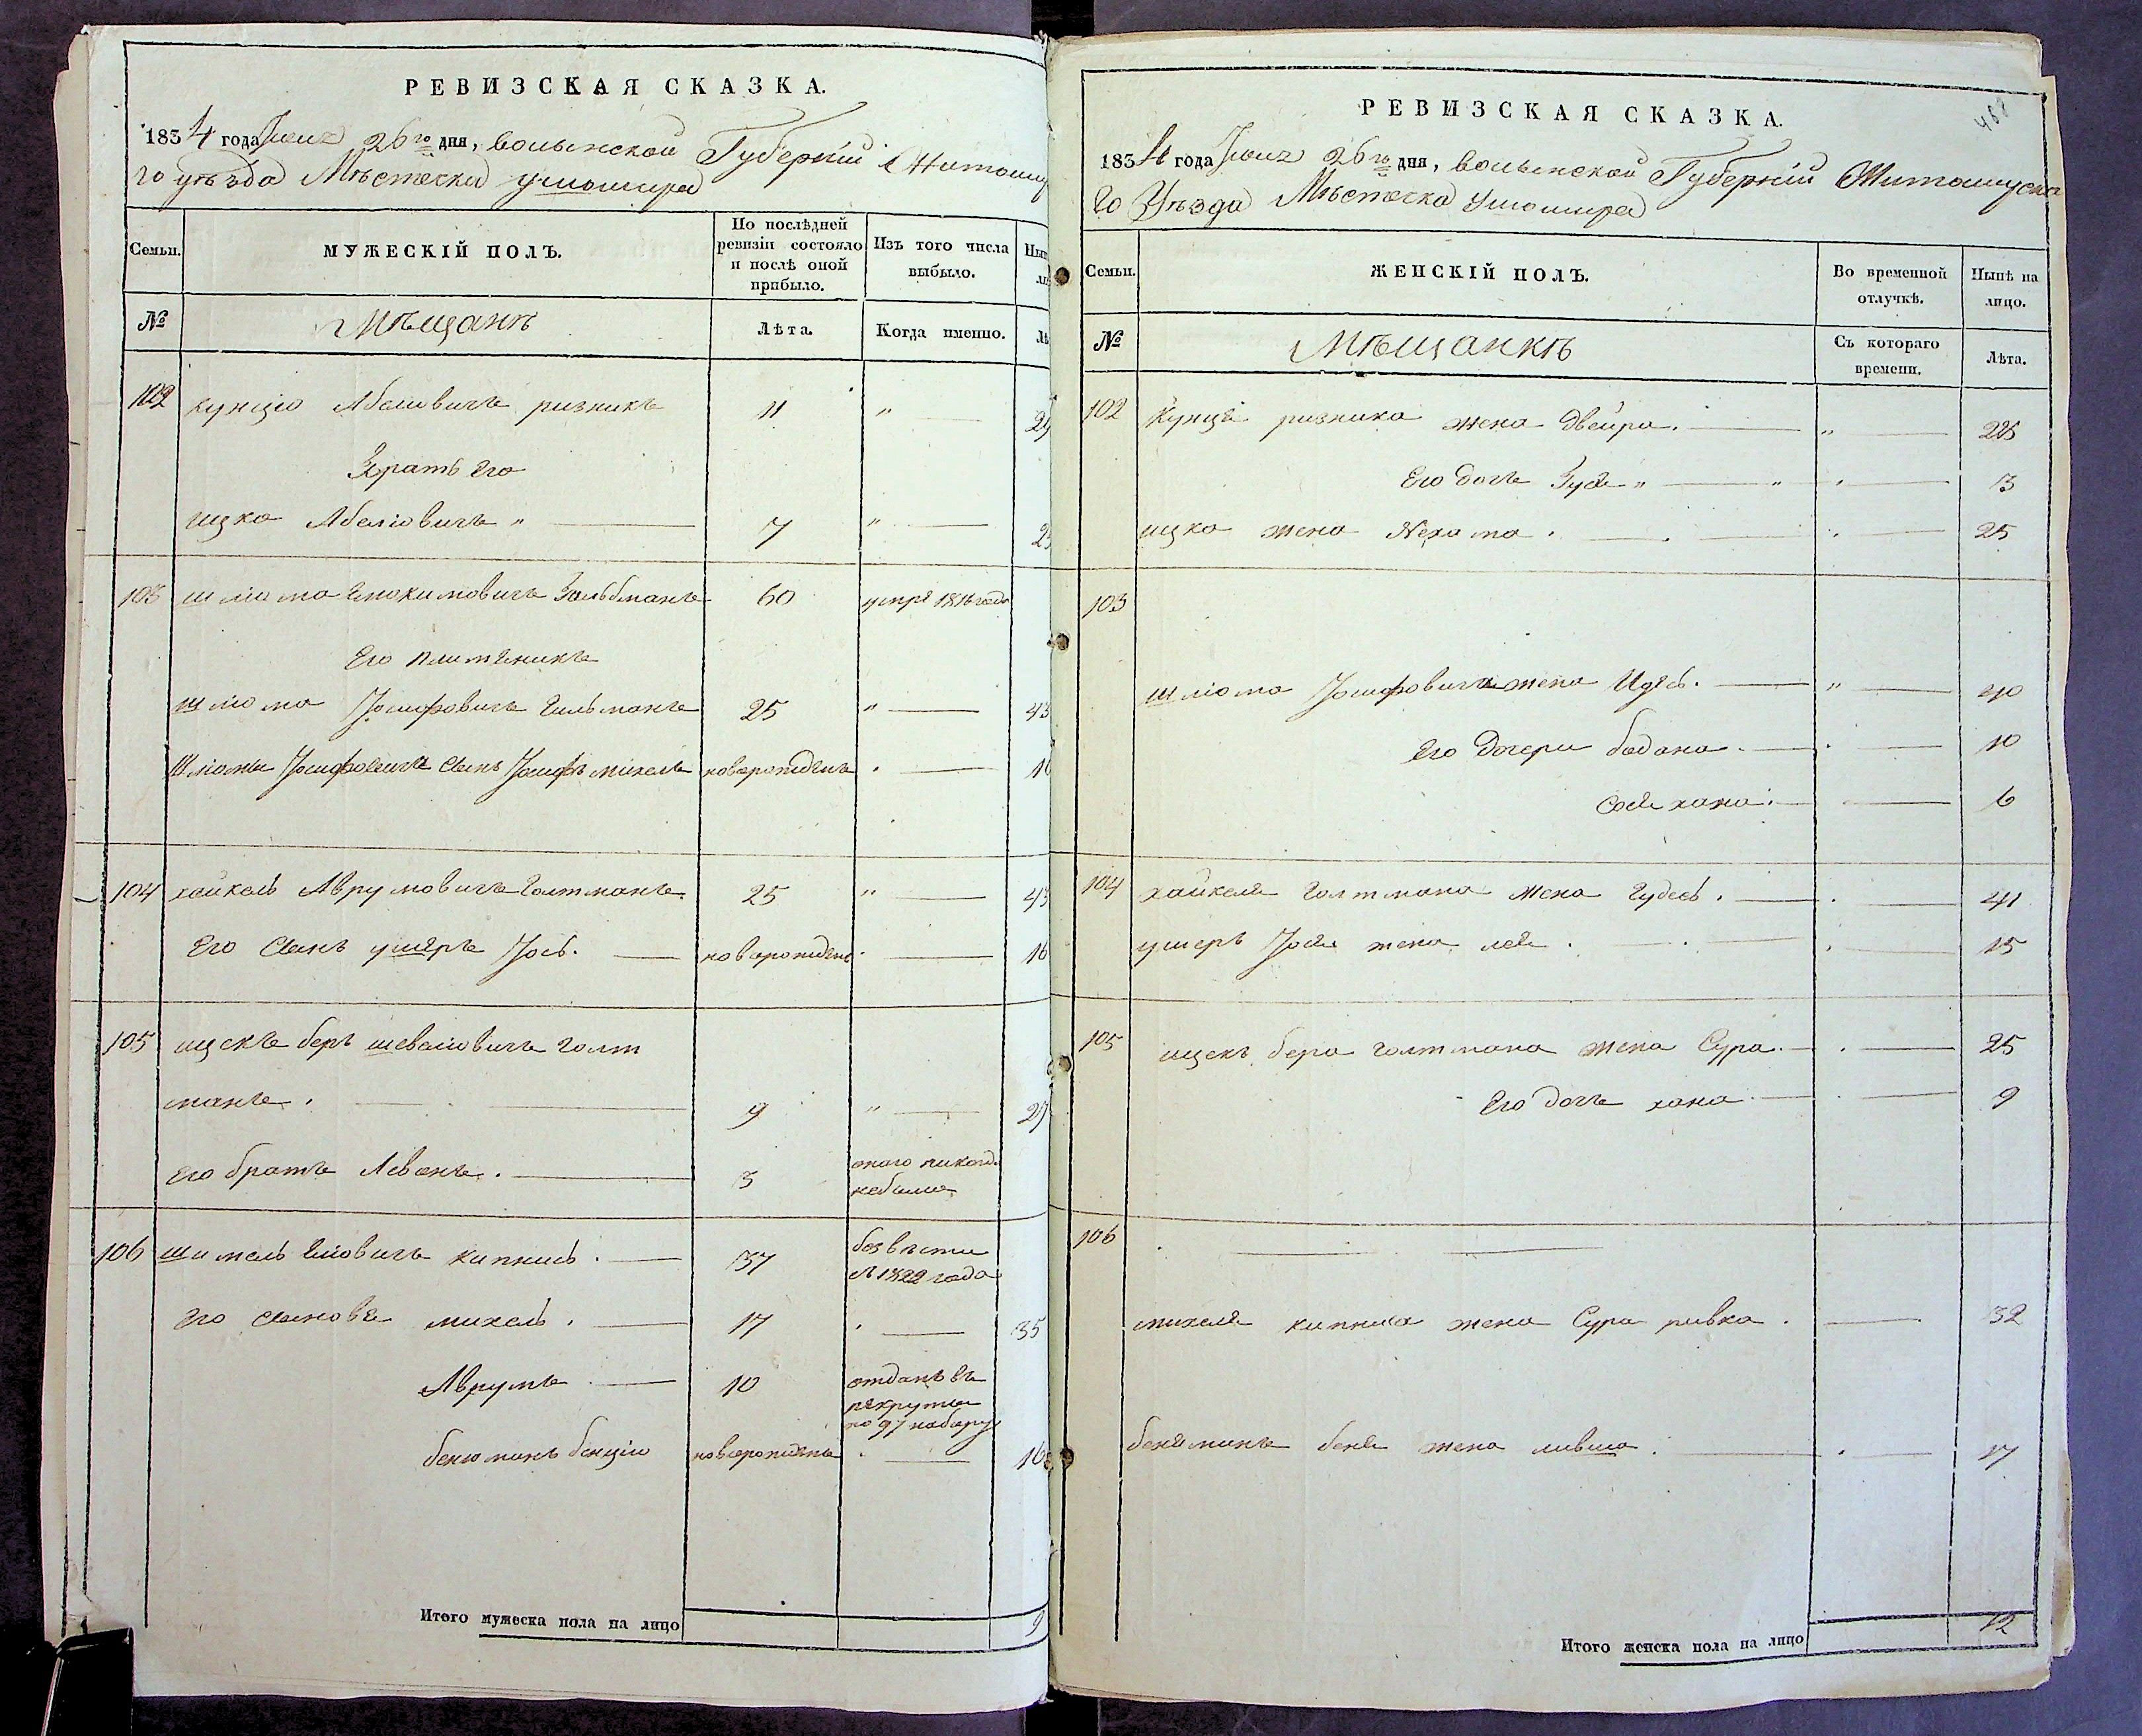 РЕВИЗСКАЯ СКАЗКА.
1834 года Июня 26го дня, волынской Губерніи Житоми
го уѣзда Мѣстечка ушомира
Семьи.
МУЖЕСКІЙ ПОЛЪ.
По послѣдней ревизіи состояло и послѣ оной прибыло.
Изъ того числа выбыло.
№
Мѣщанъ
Лѣта.
Когда именно.
102 кунцю Абелиовичъ ризникъ 11 " — 29
братъ Его
ицко Абелиовичъ " — 7 " —
103 шліома Зальбманъ 60 умре 1816 года
Его племеникъ
шліома Іосифовичъ Гильманъ 25 " — 43
шліомы Іосифовича Сынъ Іосифъ михель новорожденъ — 16
104 хайкель Аврумовичъ Голтманъ 25 " — 43
Его Сынъ ушеръ Іось. — новорожденъ — 16
105 ицекъ беръ шевелиовичъ голт
манъ. — 9 " — 27
Его братъ Леванъ. — 3 оного никогд. небыло
106 шимель Еліовичъ кипнисъ. — 37 безвѣсти с 1822 года
Его Сыновья михель. — 17 — 35
Аврумъ — 10 отданъ въ рекруты по 97 набору
бенюминъ бенцію новорожденъ — 16
Итого мужеска пола на лицо 9
РЕВИЗСКАЯ СКАЗКА.
1834 года Июня 26го дня, волынской Губерніи Житомирска
го Уѣзда Мѣстечка Ушомира
Семьи.
ЖЕНСКІЙ ПОЛЪ.
Во временной отлучкѣ.
Нынѣ на лицо.
№
Мѣщанкѣ
Съ котораго времени.
Лѣта.
102 Кунця ризника жена Двейра. — " — 28
Его дочь Зуся " — " — 13
ицка жена Нехама. — 25
103
шліома Іосифовича жена Идесь. — " — 40
Его дочери бадана. — 10
Сося хана. — 6
104 хайкеля Голтмана жена Гудесь. — 41
ушеръ Іося жена лея. — 15
105 ицекъ бера голтмана жена Сура. — 25
Его дочь хана — 9
106
михеля кипниса жена Сура ривка. — 32
бенямина беня жена ливша. — 17
Итого женска пола на лицо 12